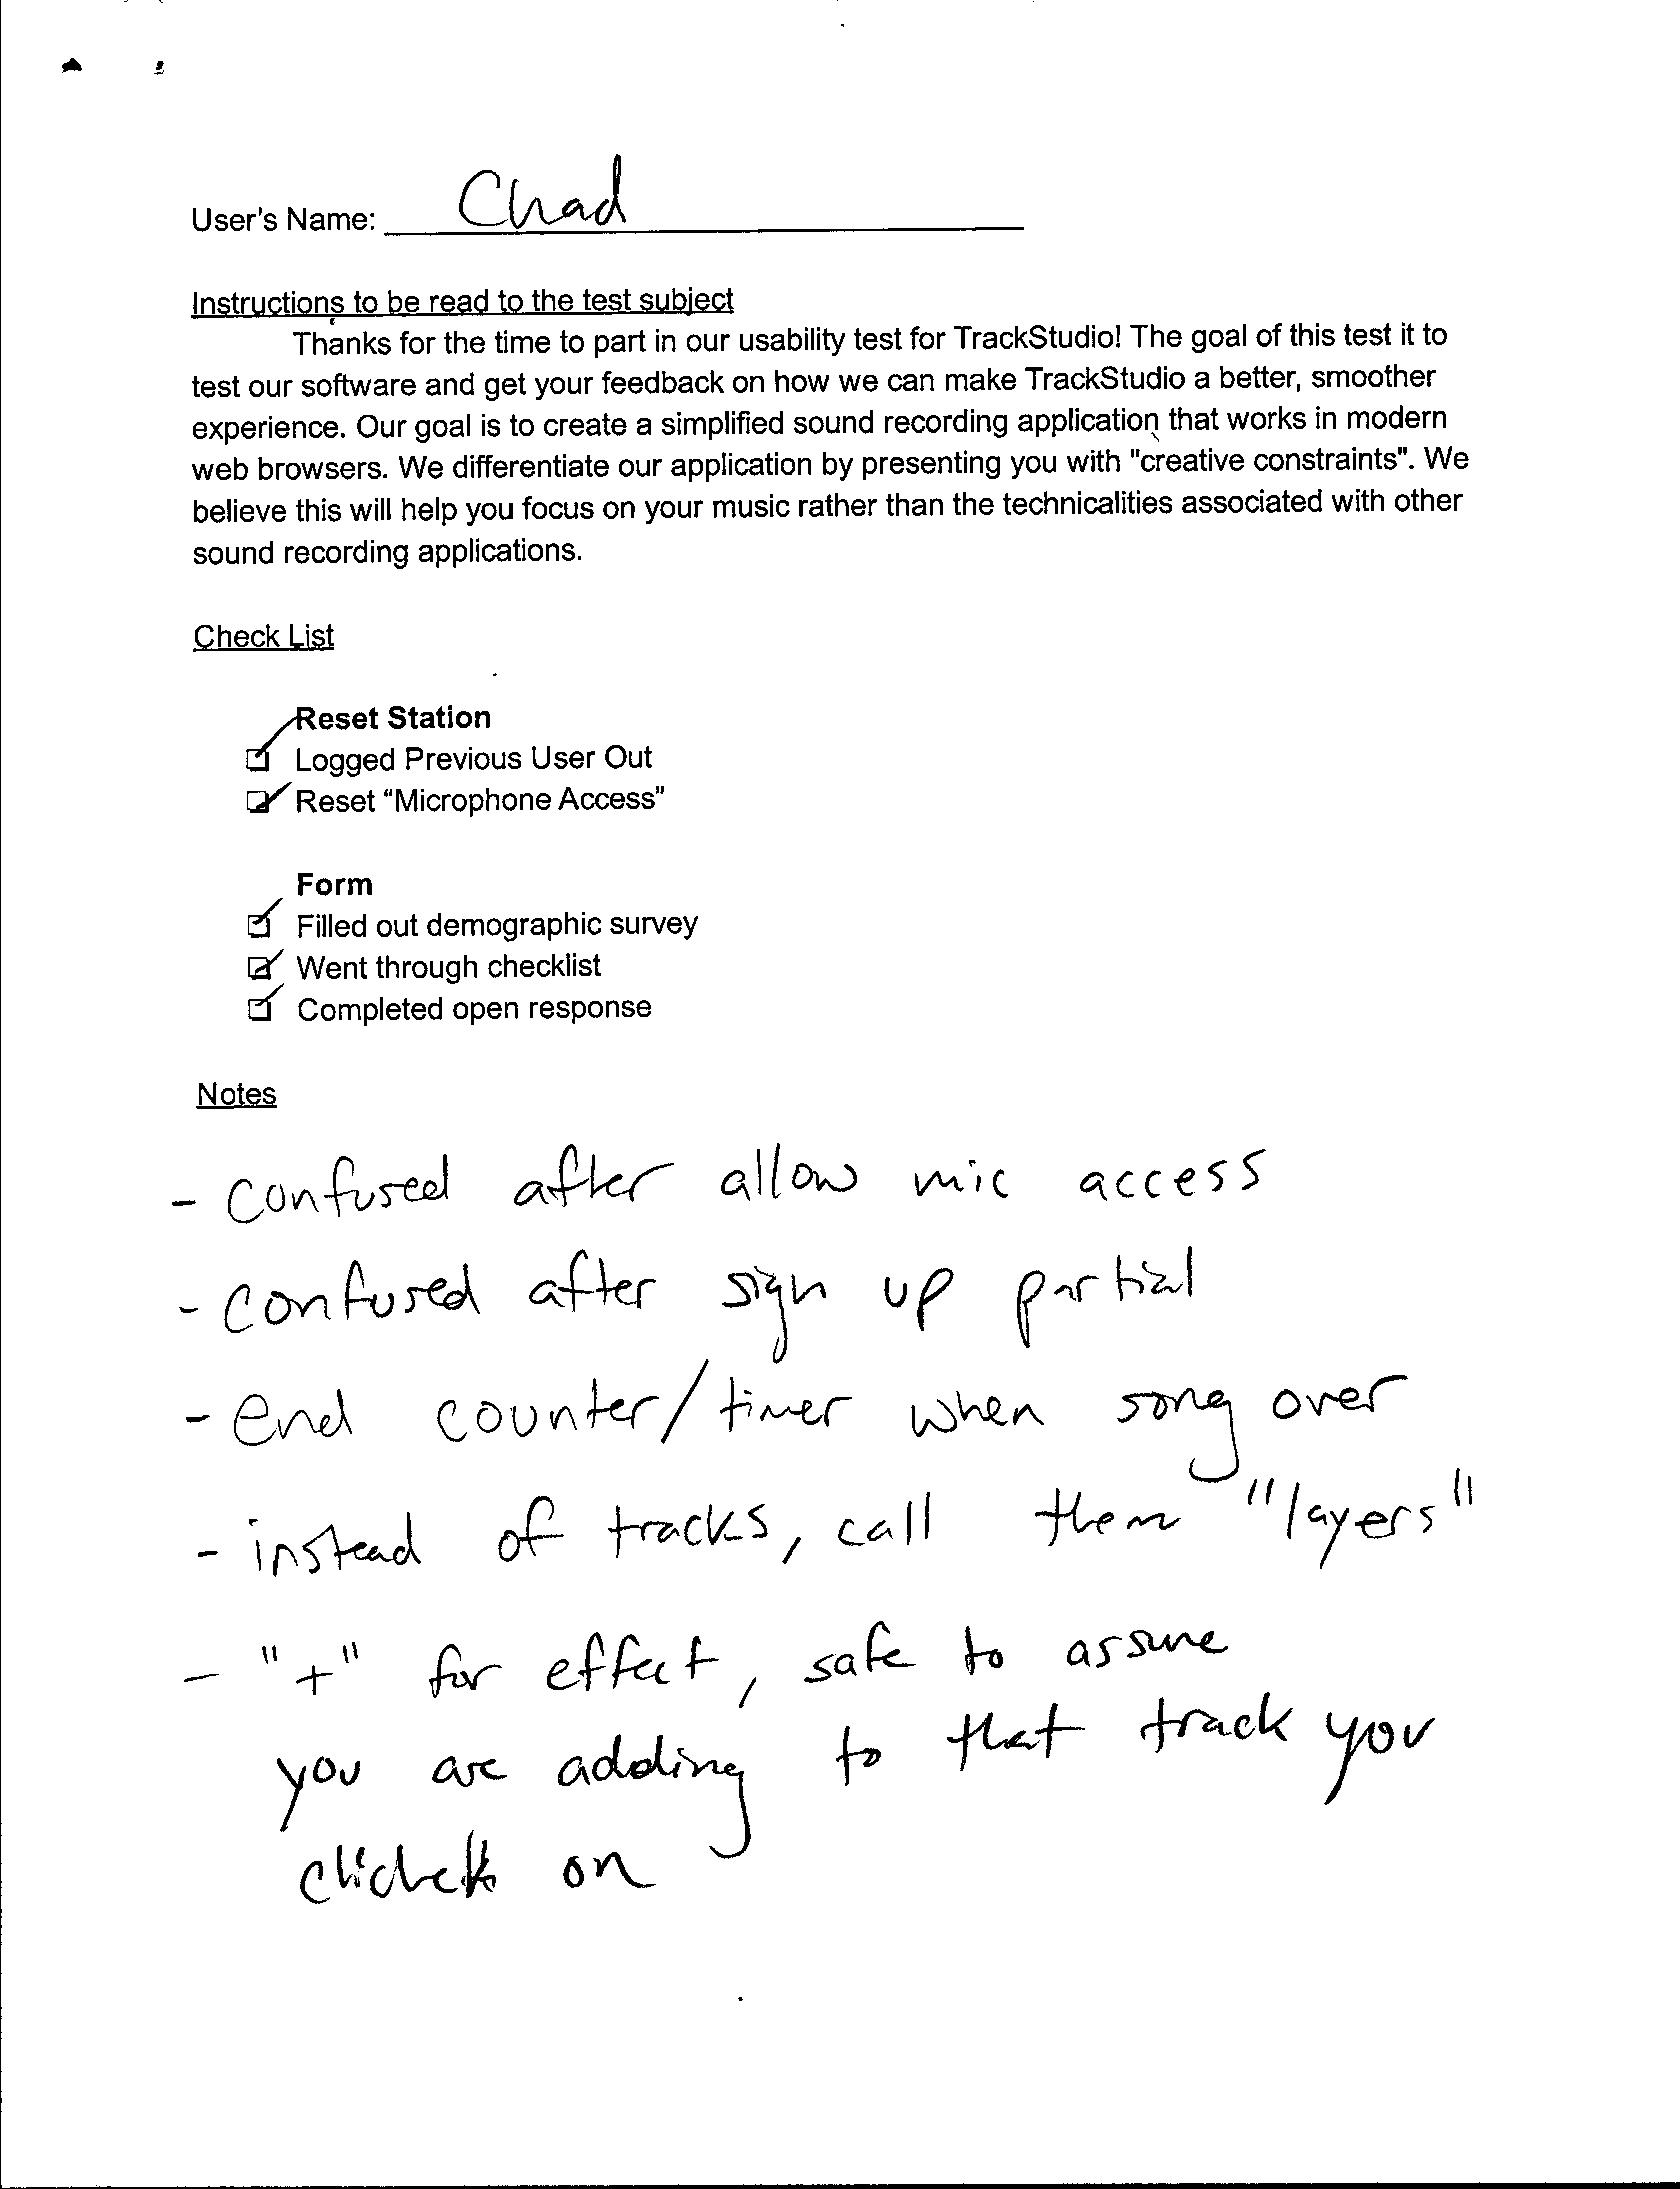 User's Name: Chad
Instructions to be read to the test subject
Thanks for the time to part in our usability test for TrackStudio! The goal of this test it to
test our software and get your feedback on how we can make TrackStudio a better, smoother
experience. Our goal is to create a simplified sound recording application that works in modern
web browsers. We differentiate our application by presenting you with "creative constraints". We
believe this will help you focus on your music rather than the technicalities associated with other
sound recording applications.
Check List
Reset Station
Logged Previous User Out
Reset “Microphone Access”
Form
Filled out demographic survey
Went through checklist
Completed open response
Notes
- confused after allow mic access
- confused after sign up partial
- end counter/timer when song over
- instead of tracks, call them "layers"
- "+" for effect, safe to assume
you are adding to that track you
on